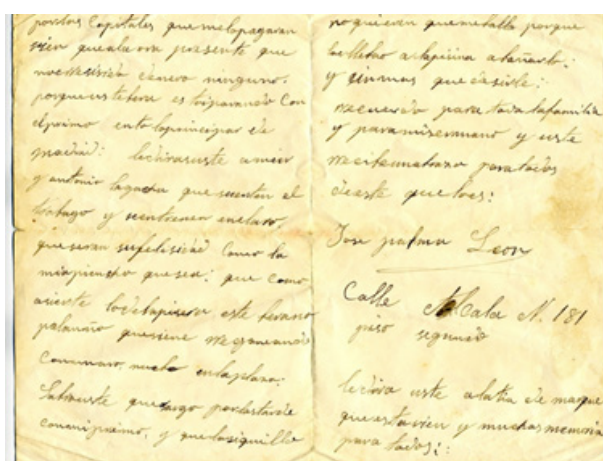 portos Capitales que melopagaran
vien quealaora presente que
noerresivido dinero ninguno.
porque ustebera es toiparando Con
elprimo ento loprincipar de
madrid: lediraususte amier
y antonio que sientan el
trabago y
queseran sufelisidad Como la
miapiencho quesea: que Como
asierte lodelapisera este berano
palanaño quesiene megomeande
Conmimaro mucho enlaplaza.
Sabrauste que salgo porlastarde
conmiprimo, y que losiquillo
noquieren quemetalla porque
lesllebo alapisina abañarlo:
y sinmas quedesirle:
recuerdo para toda lafamilia
y paramisermano y uste
resibaunabrazo paratodos
deeste queloes:
Jose palma Leon
Calle Alcala N. 181
piso segundo
ledira uste alatia de marque
questavien y muchas memoria
para todos: